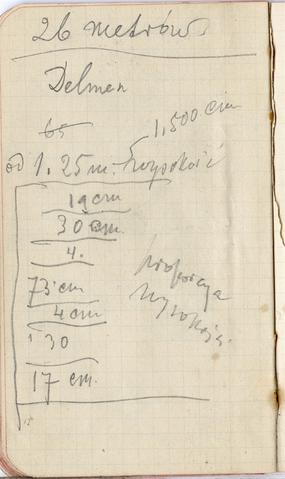 26 metrów
Delmen
65
1,500 cm
od 1.25 m. wysokość
19 cm
30 cm.
4.
73 cm
4 cm
130
17 cm.
proporcya
wysokości